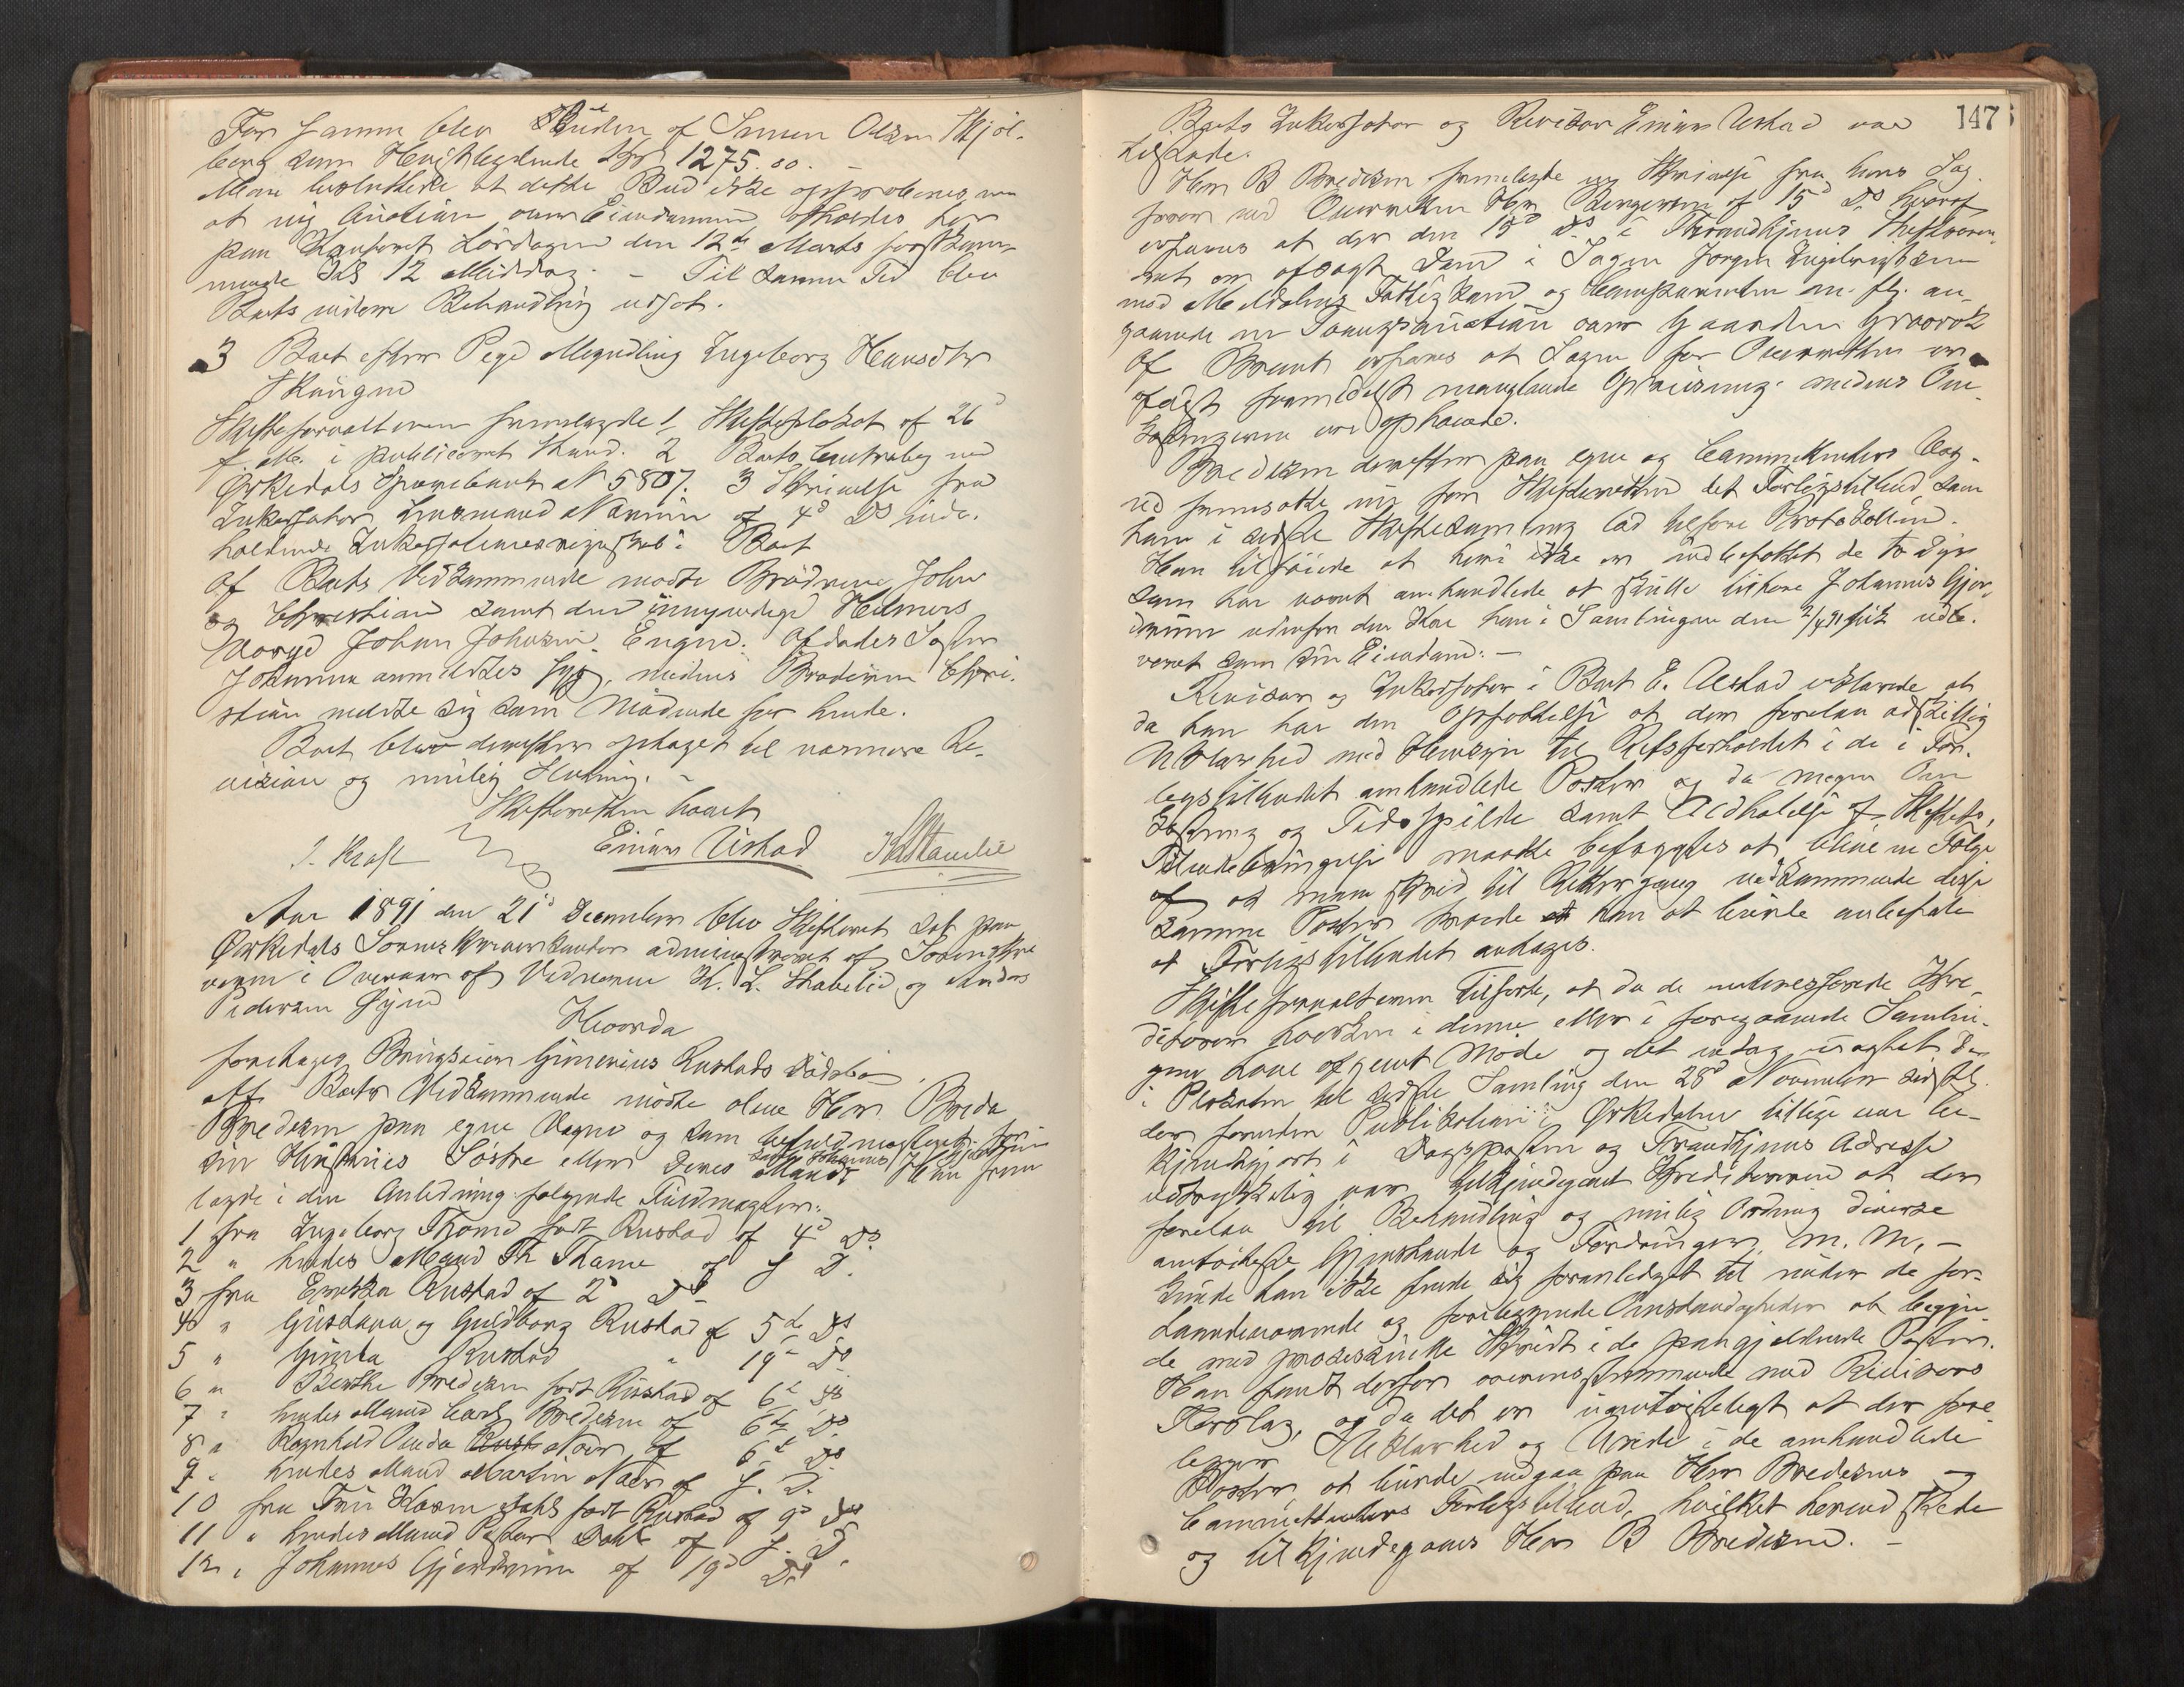 For samme blev Buden af Simen Olsen Skjøl-
berg som Høistbydende Kr 1275.00. –
Man besluttede at dette Bud ikke approberes, men
at ny Auction over Eiendommen afholdes her
paa Kontoret Lørdagen den 12te Marts førstkom-
mende Kl 12 Middag. – Til samme Tid blev
Boets videre Behandling udsat.
3 Boet efter Pige Myndling Ingeborg Hansdtr
Skaugen
Skifteforvalteren fremlagde 1, Skifteplakat af 26d
f. M. i publiceret Stand. 2 Boets Contrabog med
Ørkedals Sparebank N 5807. 3 Skrivelse fra
Inkassator Lensmand af 4d Ds inde-
holdende Boet
Af Boets Vedkommende mødte Brødrene John
og Christian samt den umyndige Helmers
Værge Johan Johnsen Engen. Afdødes Søster
Johanna anmeldtes syg, medens Broderen Chri-
stian meldte sig som Mødende for hende.
Boet blev derefter optaget til nærmere Re-
vision og mulig Slutning. –
Skifteretten hævet
J. Kraft Einar Ustad
Aar 1891 den 21d December blev Skifteret sat paa
Ørkedals Sorenskriverkontor administreret af Sorenskri-
veren i Overvær af Vidnerne K. L. Stavelid og Anders
Pedersen Øyen
Hvorda
foretages Brugseier Gunerius Rustads Dødsbo
Af Boets Vedkommende mødte alene Herr Breda
Bredesen paa egne Vegne og som befuldmægtiget for
sin Hustrues Søstre eller deres Mænd Johannes Gjerdrum Han frem-
lagde i den Anledning følgende Fuldmagter:
1 fra Ingeborg Thome født Rustad af 4d Ds
2 " hendes Mand Th Thome af s D.
3 fra Rustad af 2d Ds
4 " Gustava og Guldborg Rustad af 5te Ds
5 " Gunda Rustad " 19d Ds
6 " Berthe Bredesen født Rustad af 6te Ds
7 " hendes Mand Carl Bredesen af 6te Ds
8 " Ragnhild Rust af 6t Ds
9 " hendes Mand Martin af s. D.
10 fra Fru Karen Dahl født Rustad af 9d Ds
11 " hendes Mand Dahl af s. D.
12 " Johannes Gjerdrum af 19d Ds
147
Boets Inkassator og Revisor Einar Ustad var
tilstede.
Herr B Bredesen fremlagde en Skrivelse fra hans Sag-
fører ved Overretten Hr Bergersen af 15d Ds hvoraf
erfares at der den 15d Ds i Throndhjems Stiftsoverret
er afsagt Dom i Sagen Jørgen Ingebrigtsen
mod Meldalens Fattigkom. og m. fl. an-
gaaende en Tvangsauction over Gaarden
Af Brevet erfares at Sagen for Overretten er
afvist formedelst manglende medens Om-
kostningerne ere ophævede.
Bredesen derefter paa egne og Committenters Veg-
ne fremsatte nu for Skifteretten det Forligstilbud som
han i sidste Skiftesamling lod tilføre Protokollen.
Han tilføiede at heri ikke er indbefattet de to Dyr
som har været omhandlede at skulle tilhøre Johannes Gjer-
drum udenfor den Ko han i Samlingen den fik udle-
veret som sin Eiendom. –
Revisor og Inkassator i Boet E. Ustad erklærede at
da han har den Opfattelse at der forelaa adskillig
Uklarhed med Hensyn til Retsforholdet i de i For-
ligstilbudet omhandlede Poster og da megen Om-
kostning og Tidsspilde samt Udhalelse af Skiftets
Tilendebringelse maatte befrygtes at blive en Følge
af at man skred til Rettergang vedkommende disse
samme Poster troede han at burde anbefale
at Forligstilbudet antages.
Skifteforvalteren tilførte, at da de interesserede Kre-
ditorer hverken i denne eller i foregaaende Samlin-
ger have afgivet Møde og det uagtet der
i Placaten til sidste Samling den 28d November sidstl.
der foruden Publikation i Ørkedalen tillige var be-
kjendtgjort i Dagsposten og Trondhjems Adresse
udtrykkelig var tilkjendegivet Kreditorerne at der
forelaa til Behandling og mulig Ordning diverse
omtvistede Gjenstande og Fordringer m. m., –
kunde han ikke finde sig foranlediget til under de for-
haandenværende og foreliggende Omstændigheder at begyn-
de med processuelle Skridt i de paagjældende Poster.
Han fandt derfor overensstemmende med Revisors
Forslag, og da det er uomtvisteligt at der fore-
ligger Uklarhed og Uvished i de omhandlede
Poster, at burde indgaa paa Herr Bredesens og
Committenters Forligstilbud, hvilket herved skede
og tilkjendegaves Herr B Bredesen. –